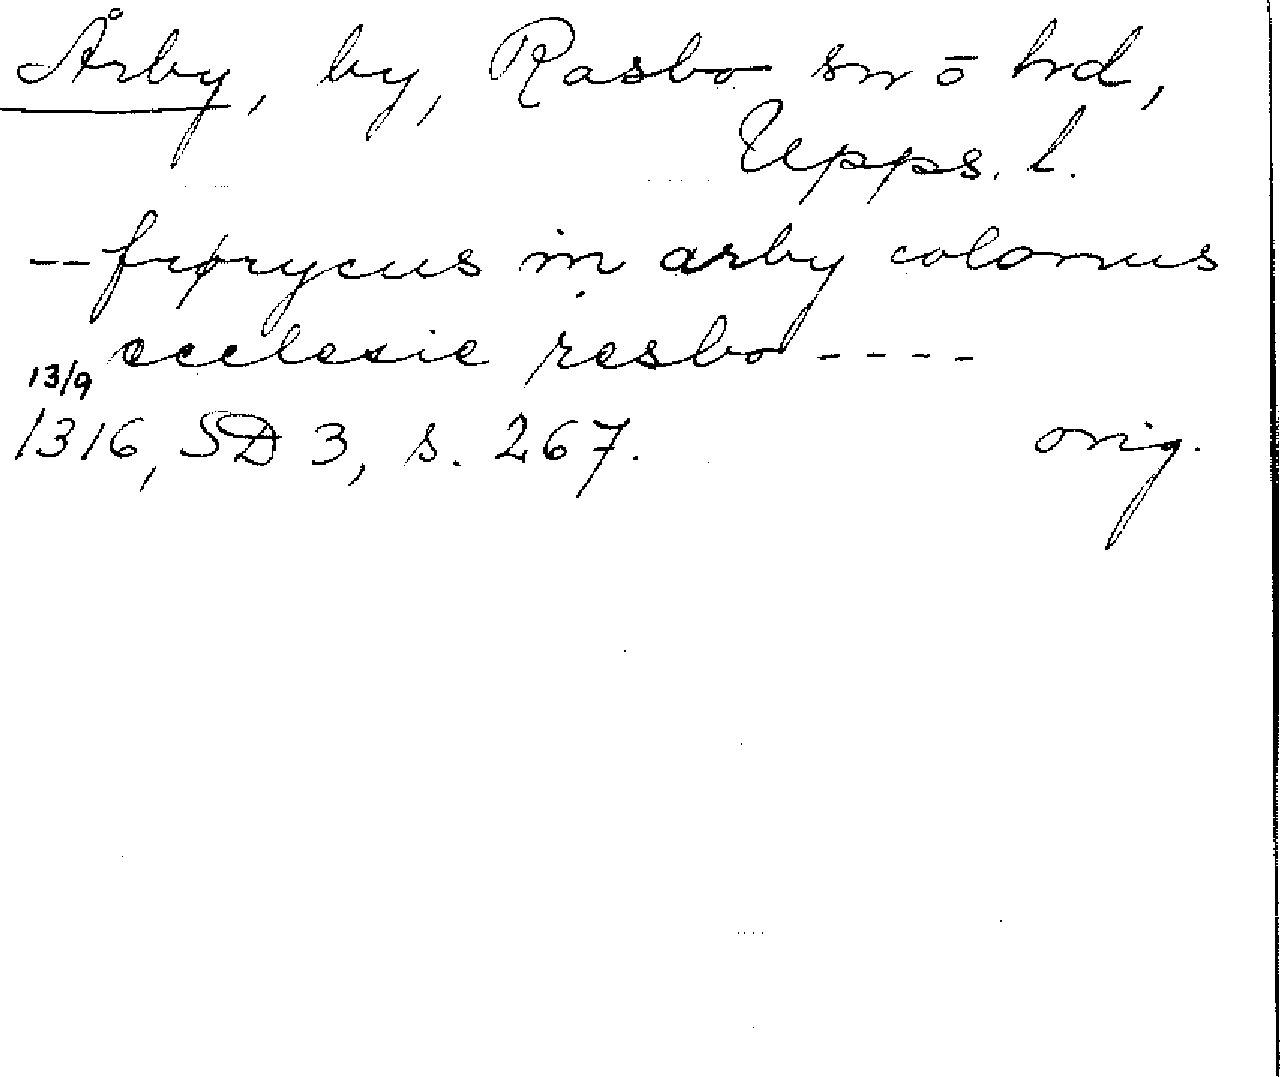 Årby, by, Rasbo sn o hd,
Upps. l.
-- friþrycus in arby colonus
ecclesie resbo ----
13/9
1316, SD 3, s. 267. orig.